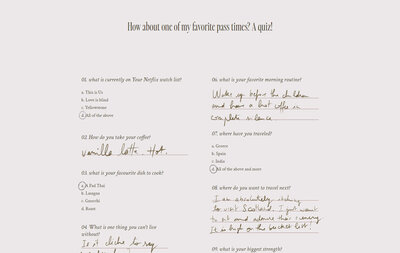 How about one of my favorite pass times? A quiz!
01. what is currently on Your Netflix watch list?
a. This is Us
b. Love is blind
c. Yellowstone
d. All of the above
02. How do you take your coffee?
vanilla latta. Hot.
03. what is your favourite dish to cook?
a. Pad Thai
b. Lasagna
c. Gnocchi
d. Roast
04. What is one thing you can't live
without?
Is it cliche to say
06. what is your favorite morning routine?
Wake up before the children
and have a hot coffee in
complete silence.
07. where have you traveled?
a. Greece
b. Spain
c. India
d. All of the above and more
08. where do you want to travel next?
I am absolutely itching
to visit Scotland. I just want
to sit and admire the scenery
It is high on the bucket list!
09. what is your biggest strength?